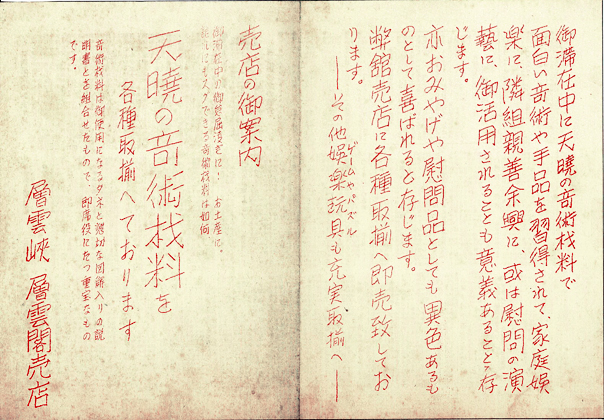 御滞在中に天暁の奇術材料で
面白い奇術や手品を習得されて、家庭娯
楽に、隣組親善余興に、或は慰問の演
藝に、御活用されることも意義あることゝ存
じます。
亦おみやげや慰問品としても異色あるも
のとして喜ばれると存じます。
弊舘売店に各種取揃へ即売致してお
ります。
ゲームやパズル
――その他娯楽玩具も充実、取揃へ――
売店の御案内
御滞在中の御退屈凌ぎに! お土産に。
天暁の奇術材料を
各種取揃へております
奇術材料は御使用になるタネと懇切な図解入りの説
明書とを組合せたもので、即席役にたつ重宝なもの
です。
層雲峡 層雲閣売店